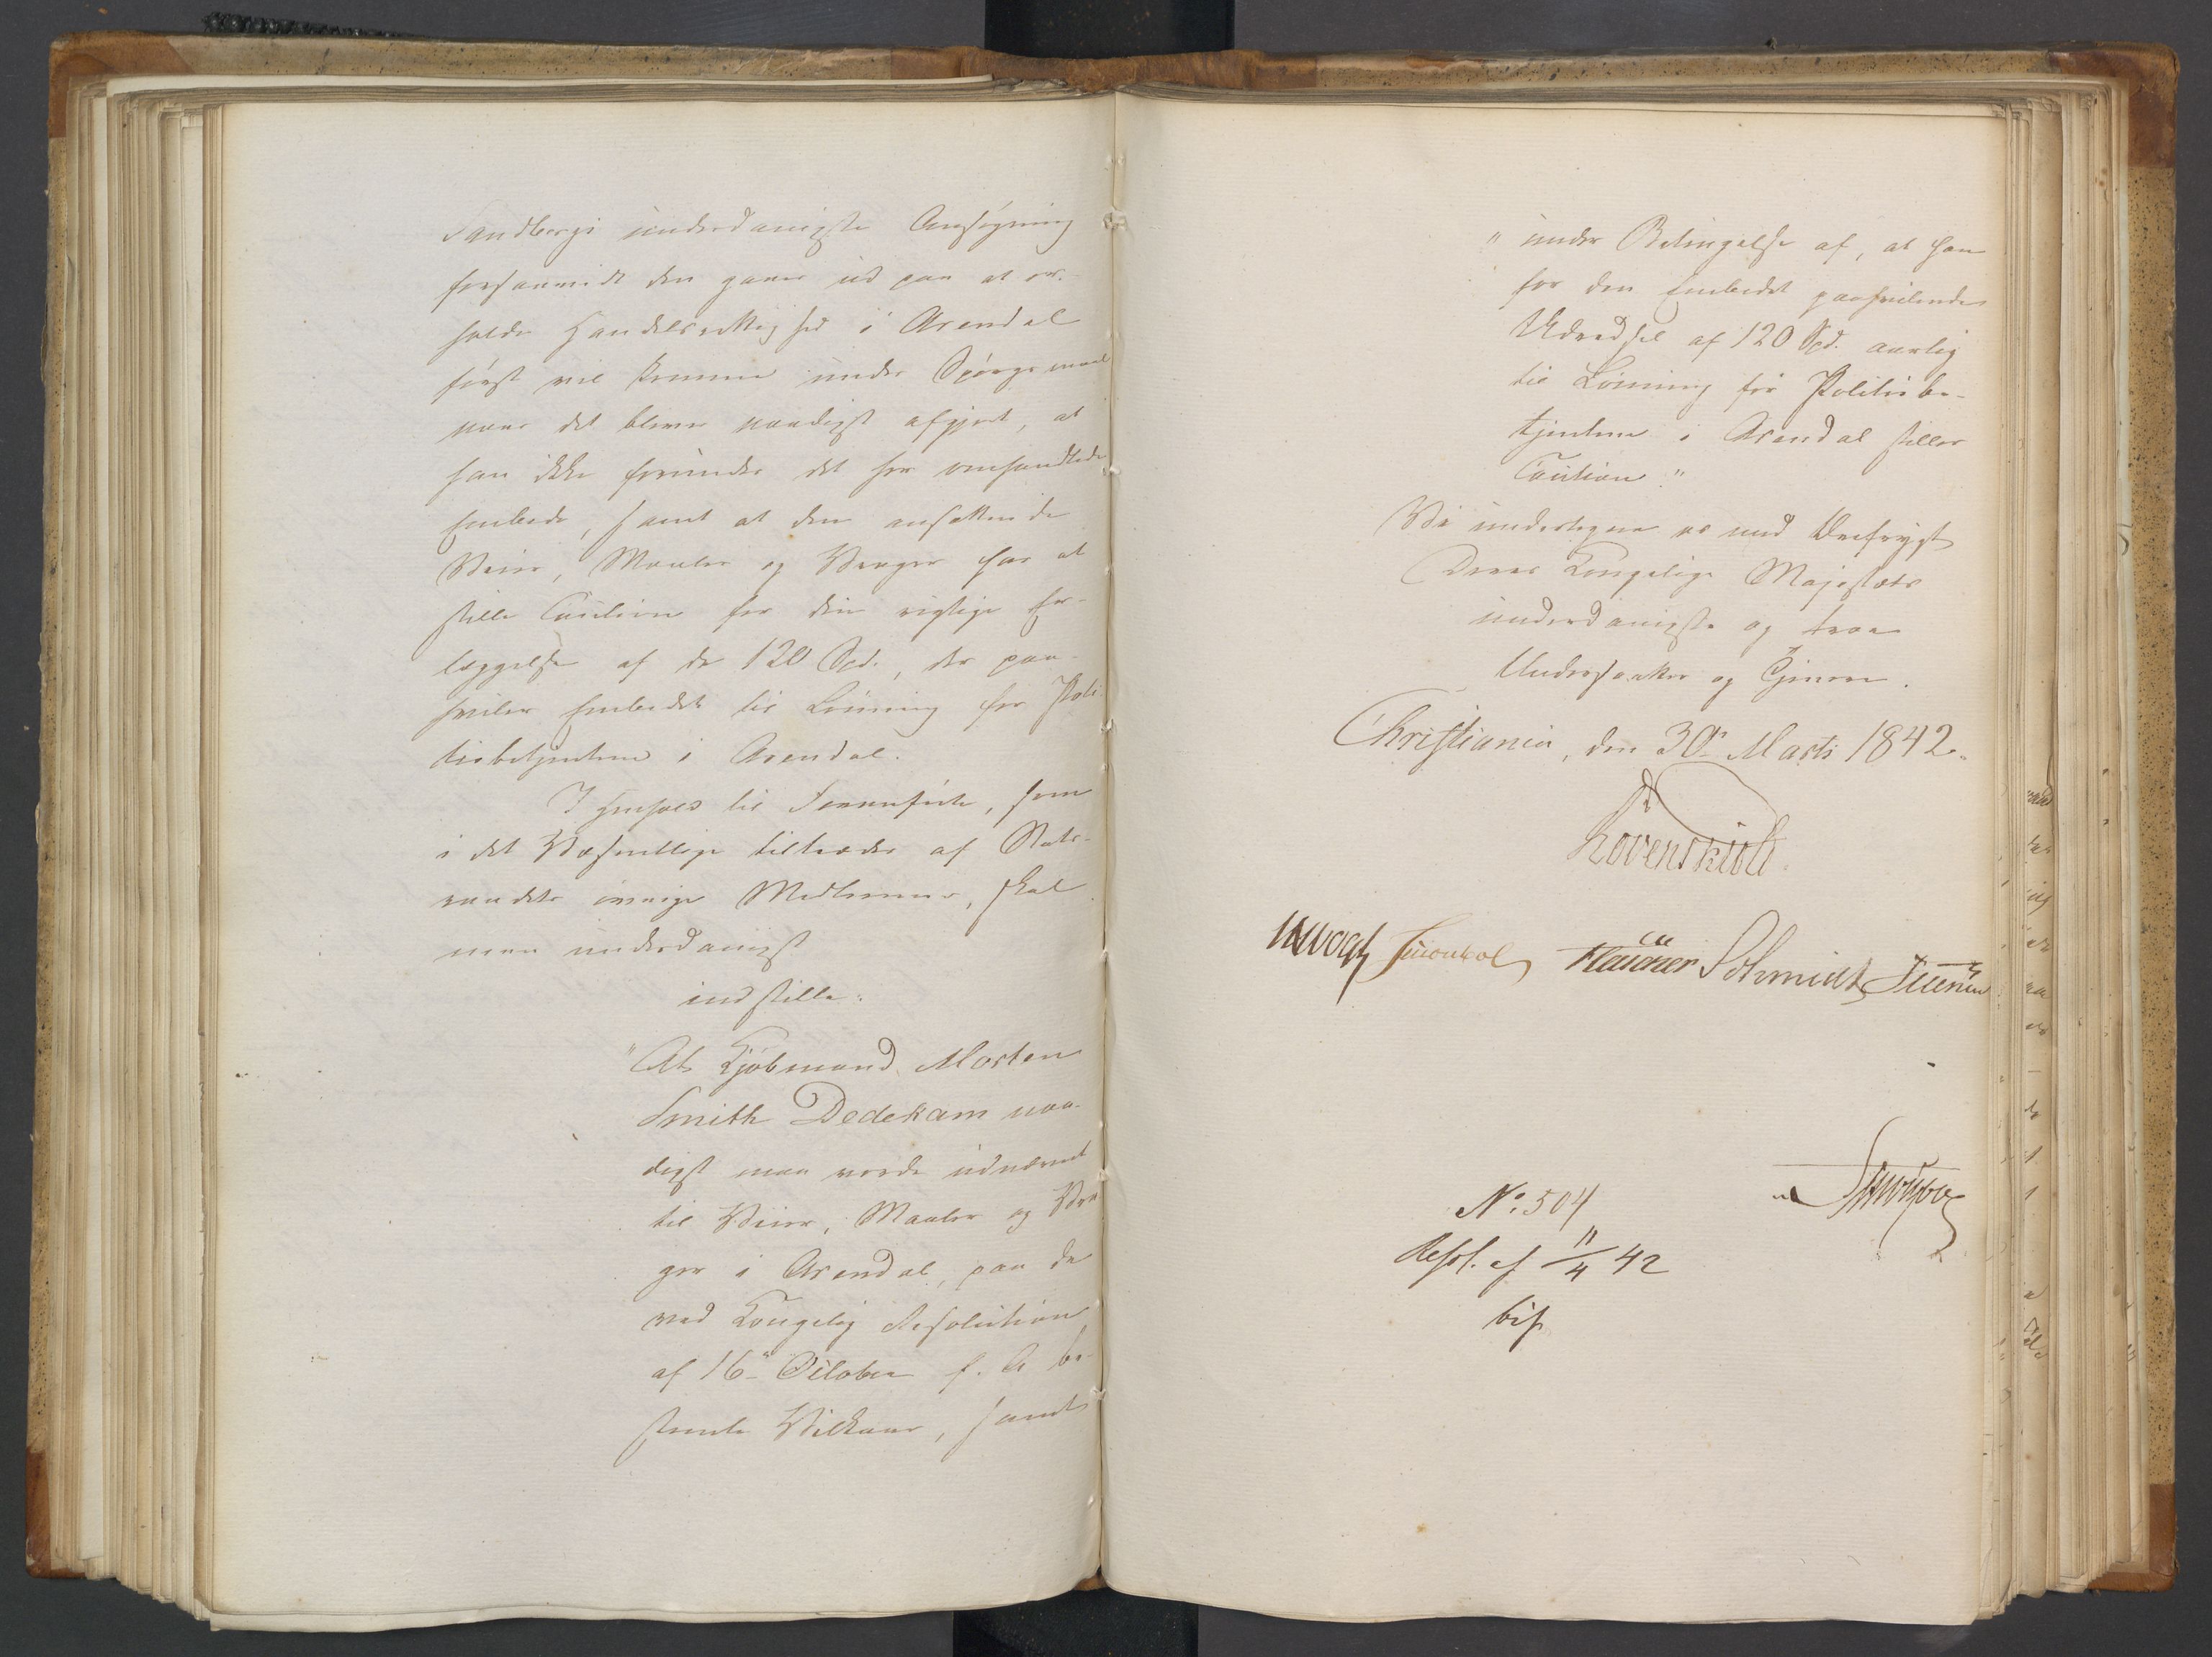 Sandbergs underdanigste Ansøgning
forsaavidt den gaaer ud paa at er-
holde Handelsrettighed i Arendal
først vil komme under Spørgsmaal
naar det bliver naadigst afgjort, at
han ikke forundes det her omhandlede
Embede, samt at den ansættende
Veier, Maaler og Vrager har at
stille Caution for den rigtige Er-
læggelse af de 120 Spd., der paa-
hviler Embedet til Lønning for Poli-
tiebetjentene i Arendal.
I Henhold til Foranførte, som
i det Væsentlige tiltrædes af Stats-
raadets øvrige Medlemmer, skal
man underdanigst
indstille:
"At Kjøbmand Morten
Smith Dedekam naa-
digst maa vorde udnævnt
til Veier, Maaler og Vra
ger i Arendal, paa de
ved Kongelig Resolution
af 16de October f. A. be-
stemte Vilkaar, samt
" under Betingelse af, at han
for den Embedet paahvilende
Udredsel af 120 Spd. aarlig
til Lønning for Politiebe-
tjentene i Arendal stiller
Caution."
Vi undertegne os med Ærefrygt
Deres Kongelige Majestæts
underdanigste og troe
Undersaatter og Tjenere.
Christiania, den 30te Marts 1842.
Løvenskiold
Vogt Schmidt
No. 504
Resol. af 11/4 42
bif.